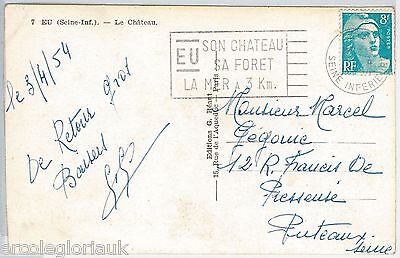 7 EU (Seine-Inf.). — Le Château.
EU
SON CHATEAU
SA FORET
LA MER à 3 Km.
8F
POSTES
RF
SEINE INFERIEURE
le 3/4/54
De Retour gros
Baisers
Editions G. Réant
15, Rue de l'Aqueduc - Paris
Monsieur Marcel
Gégonic
12 R. Francis De
Pressensé
Puteaux
Seine
ercolegloriauk
ercolegloriauk